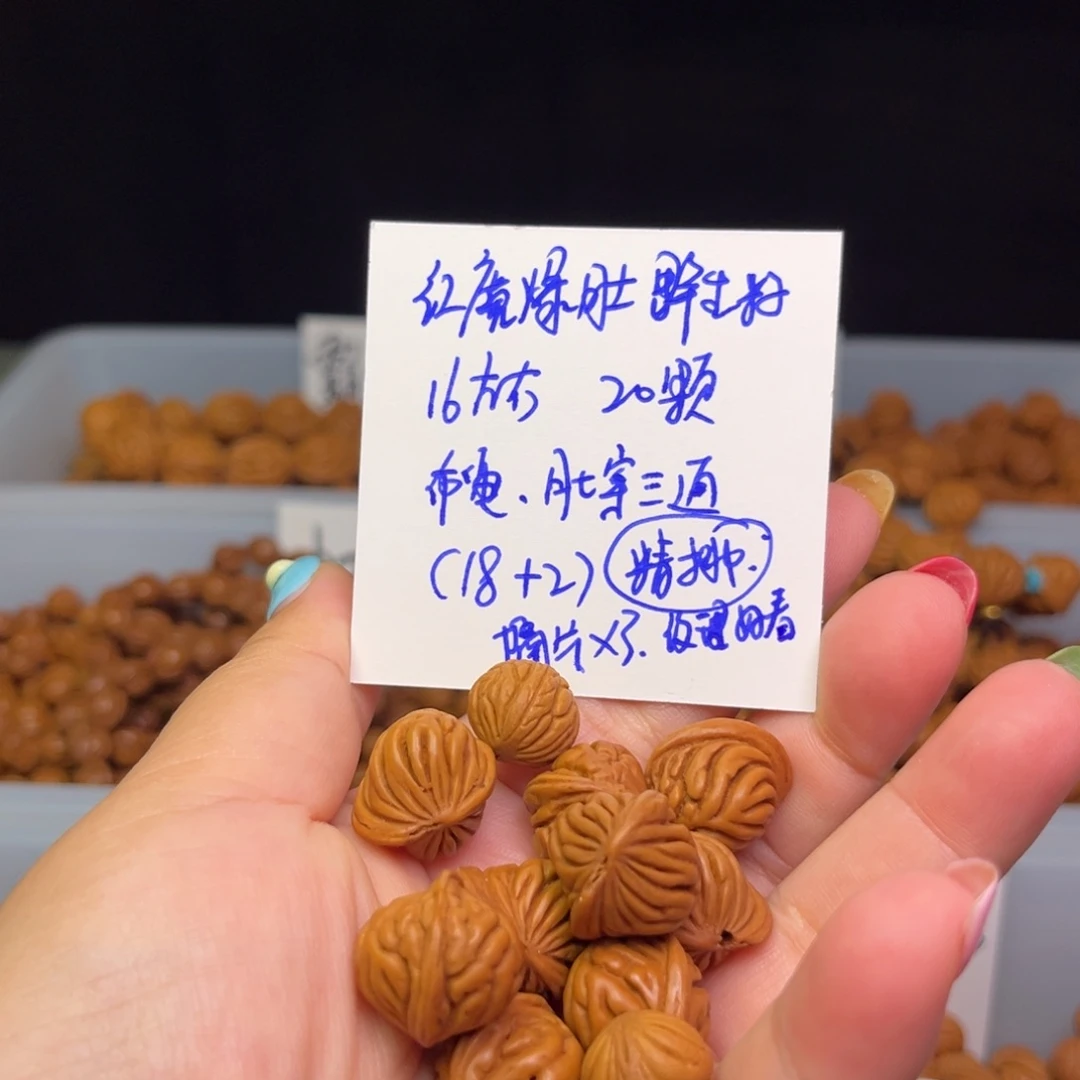 红魔爆肚 野生籽
16左右 20颗
布包、肚字三通
(18+2) 精挑.
隔片X3. 纹理好看